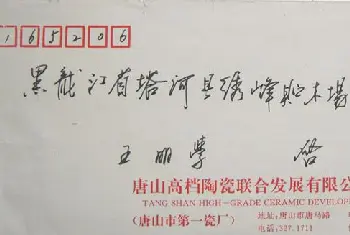 165206
黑龙江省塔河县绣峰贮木場
王明学 啓
唐山高档陶瓷联合发展有限公
TANG SHAN HIGH-GRADE CERAMIC DEVELOP
(唐山市第一瓷厂) 地址:唐山市唐马路
电话:327.1711